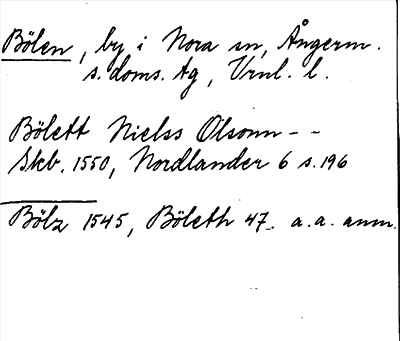 Bölen, by i Nora sn, Ångerm.
s. doms. tg, Vrnl. l.
Bölett Nielss Olsonn - -
Skb. 1550, Nordlander 6 s. 196
Bölz 1545, Böleth 47. a. a. anm.